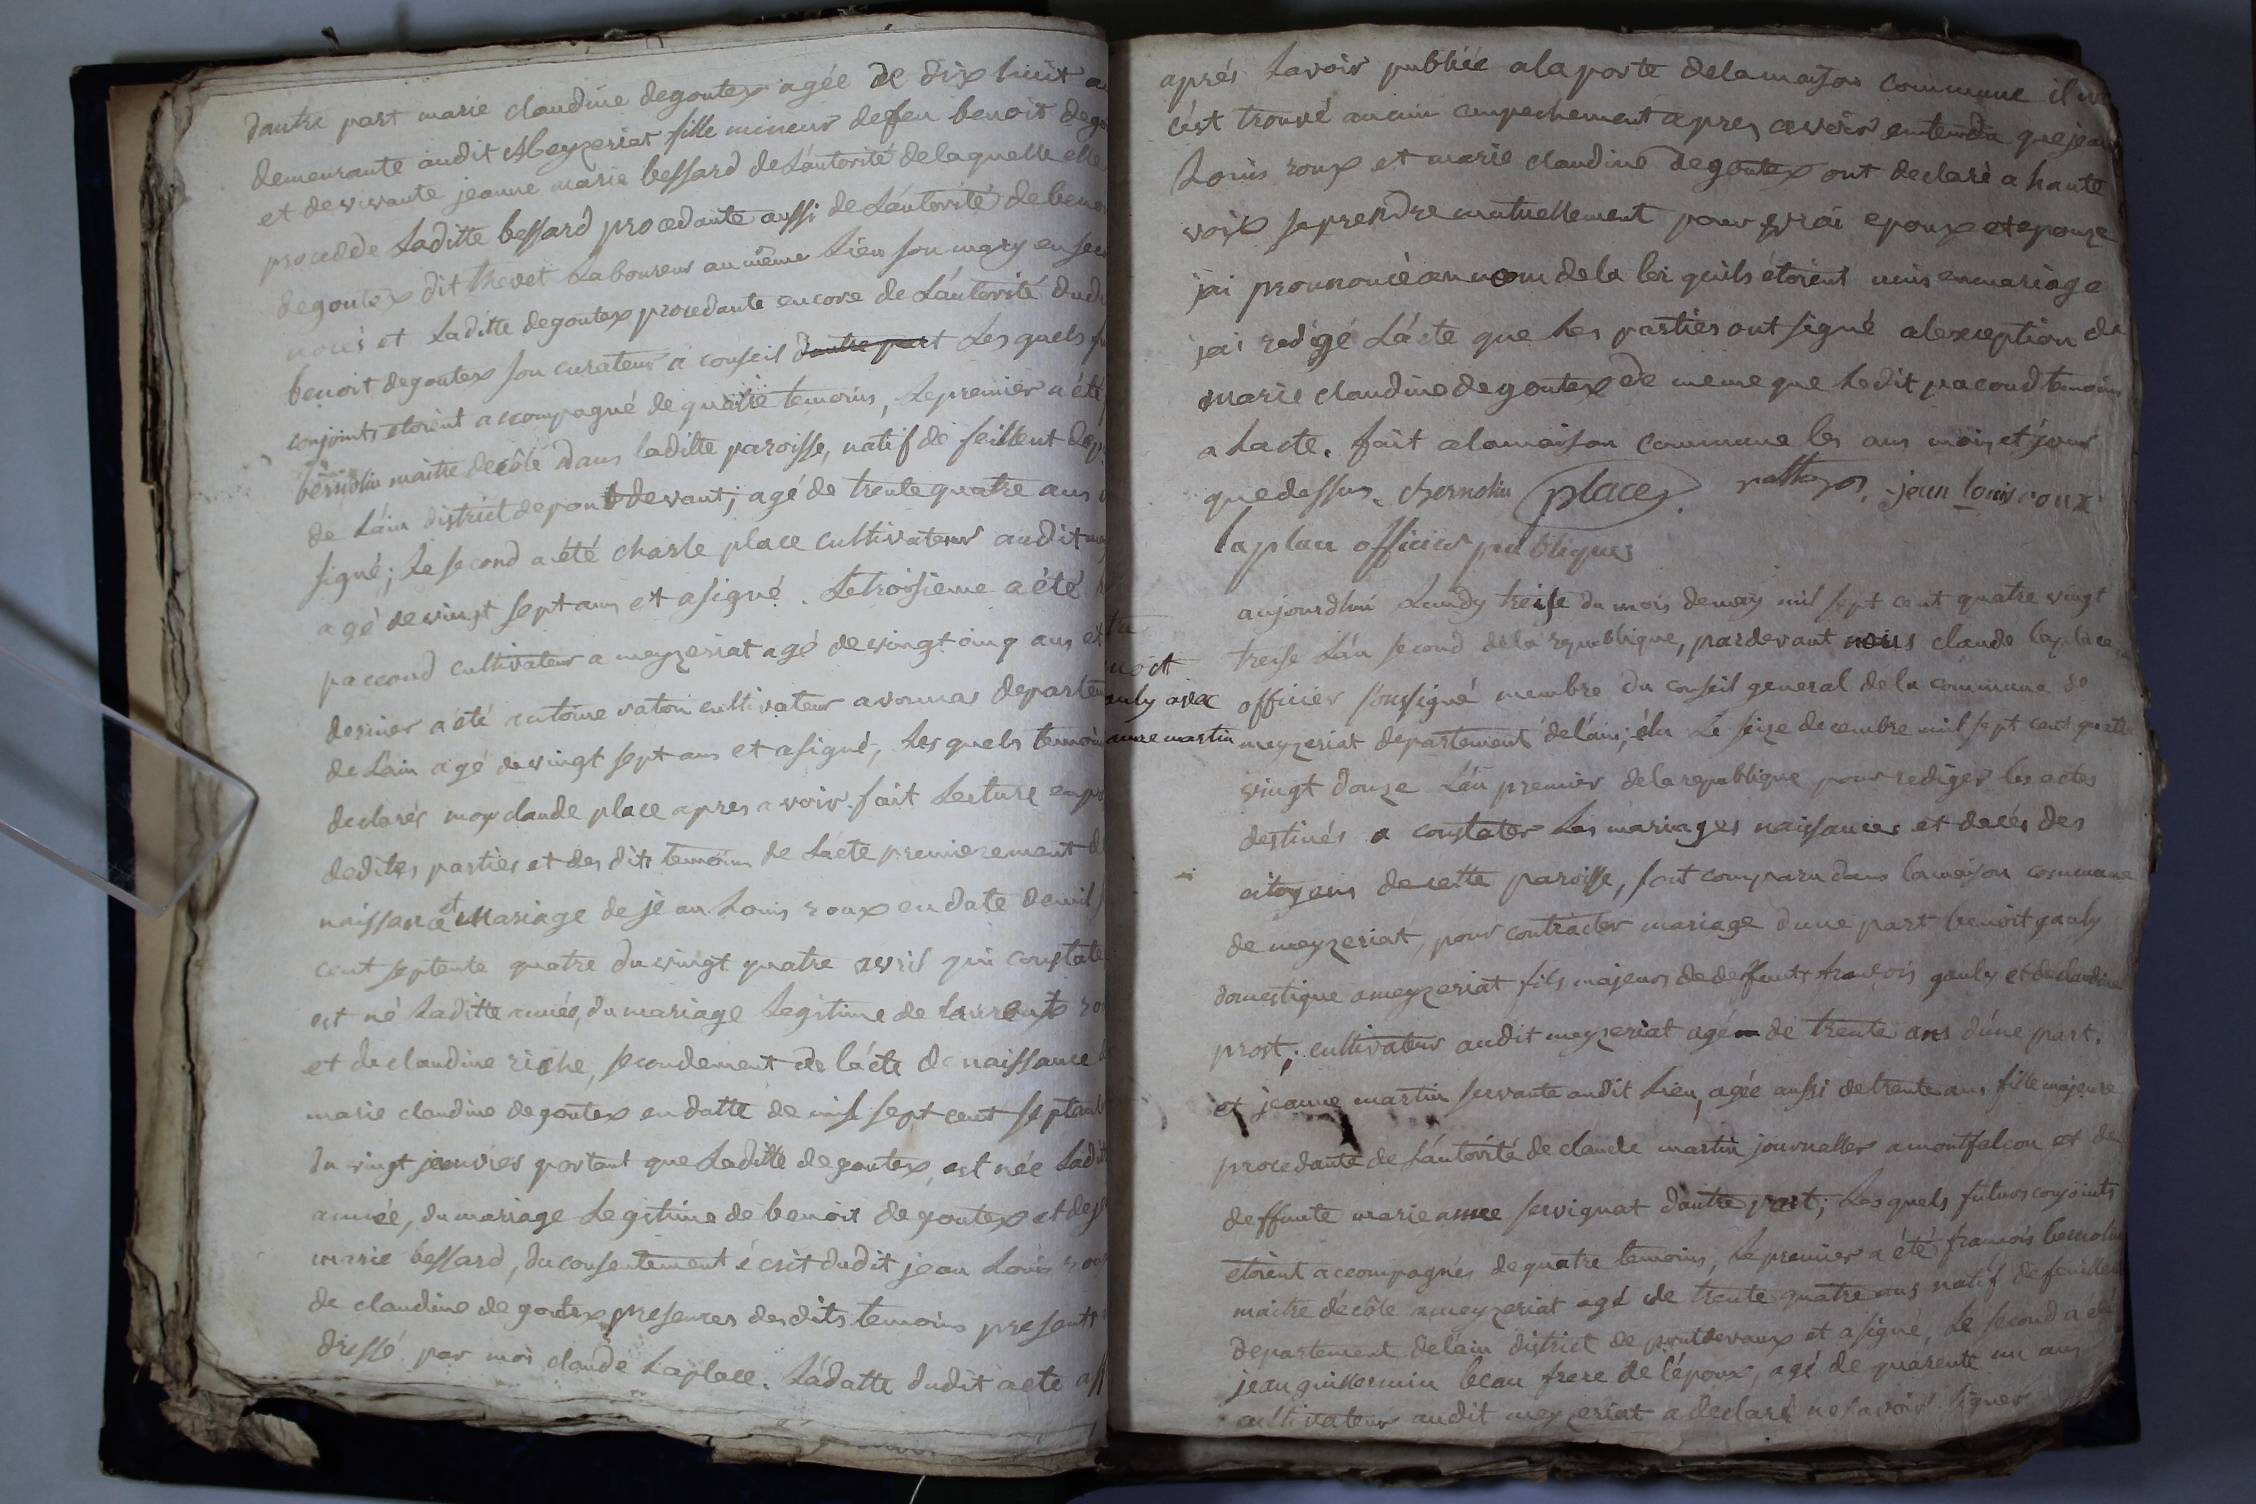 dautre part marie claudine degoutex agée de dix huit
demeurante audit Meyzeriat fille mineur de feu benoit
et de vivante jeanne marie bessard de Lautorité de laquelle elle
procedde Laditte bessard procedante aussi de Lautorité de
degoutex dit thevet Laboureur au même Lieu son mary en
noces et Laditte degoutex procedante encore de Lautorité
benoit degoutex son curateur a conseil dautre part Les quels
conjoints etoient accompagné de quatre temoins, Le premier a été
bernolin maitre decôle dans laditte paroisse, natif de feillent
de Lain district de pont de vaux; agé de trente quatre ans
signé; Le second a été charle place cultivateur audit
agé de vingt sept ans et a signé. Le troisieme a été
paccoud cultivateur a meyzeriat agé de vingt cinq ans et
dernier a été antoine vaton cultivateur a vonnas
de Lain agé de vingt sept ans et a signé; Les quels
declarés moy claude place apres avoir fait Lecture
dedites parties et des dits temoins de Lacte premierement
naissance et Mariage de jean Louis roux en date de mil
cent septente quatre du vingt quatre avril qui constate
est né Laditte année, du mariage Legitime de
et de claudine riche, secondement de lácte de naissance
marie claudine degoutex en datte de mil sept cent
du vingt janvier portant que Laditte degoutex, est née
année, du mariage Legitime de benoit degoutex et de
marie bessard, du consentement écrit dudit jean Louis
de claudine degoutex presences desdits temoins presents
dressé par moi claude Laplace. Ladatte dudit acte
aprés Lavoir publiée a la porte de la maison commune il
cést trouvé aucun empechement apres avoir entendu que jean
Louis roux et marie claudine degoutex ont declaré a haute
voix se prendre mutuellement pour vrai epoux et epouze
jai prononcé au nom de la loi quils étoient unis en mariage
jai redigé Lácte que Les parties ont signé alexception de
marie claudine degoutex de meme que Ledit pacoud temoins
a Lacte. fait a la maison commune les ans mois et jour
que dessus. bernolin place. jean louis roux
laplace officier publique
aujourdhui Lundy treise du mois de may mil sept cent quatre vingt
treise Lán second de la republique, pardevant nous claude laplace
officier soussigné membre du conseil general de la commune de
meyzeriat departement de láin; élu Le seize decembre mil sept cent quatre
vingt douze Lán premier de la republique pour rediger les actes
destinés a constater Les mariages naissances et decés des
citoyens de cette paroisse, sont comparu dans la maison commune
de meyzeriat, pour contracter mariage dune part benoit gauly
domestique a meyzeriat fils majeur de deffunt francois gauly et de claudine
prost; cultivateur audit meyzeriat agé de trente ans dúne part.
et jeanne martin servante audit Lieu, agée aussi de trente ans fille majeure
procedante de Láutorité de claude martin journallier a montfalcon et de
deffunte marie anne servignat dautre part; Les quels futurs conjoints
etoient accompagnés de quatre temoins, Le premier a été francois bernolin
maitre décôle a meyzeriat agé de trente quatre ans natif de feillent
departement de láin district de pont devaux et a signé, Le second a été
jean guillermin beau frere de l'époux, agé de quarente un ans
cultivateur audit meyzeriat a declaré ne savoir signer
noit
auly avec
anne martin